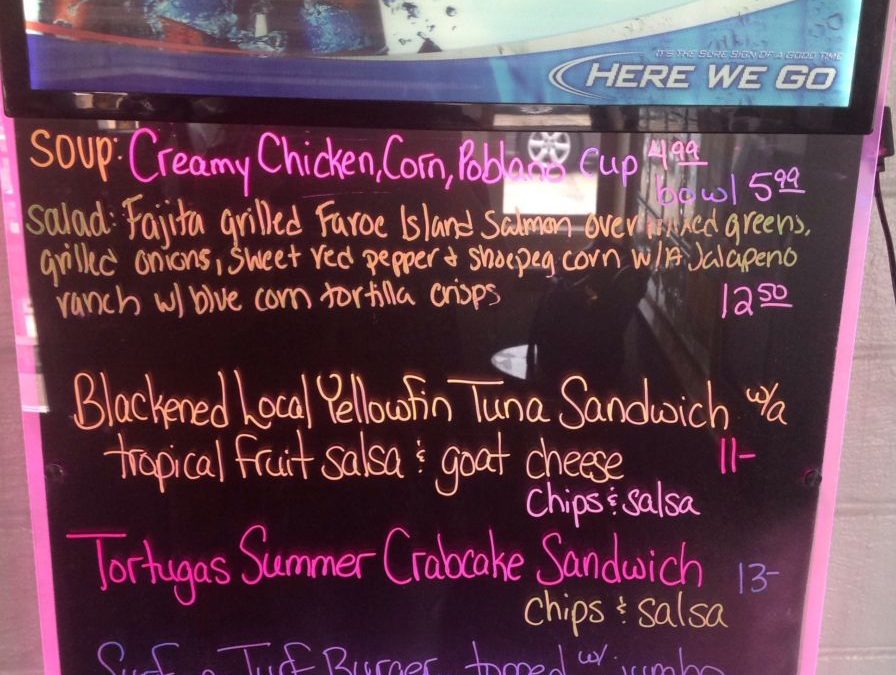 IT'S THE SURE SIGN OF A GOOD TIME
HERE WE GO
Soup: Creamy Chicken, Corn, Poblano Cup 4.99
bowl 5.99
Salad: Fajita grilled Faroe Island Salmon over mixed greens,
grilled onions, sweet red pepper & shoepeg corn w/A Jalapeno
ranch w/ blue corn tortilla crisps 12.50
Blackened Local Yellowfin Tuna Sandwich w/a
tropical fruit salsa & goat cheese 11-
Chips & salsa
Tortugas Summer Crabcake Sandwich 13-
Chips & salsa
Surf n Turf Burger topped w/ jumbo